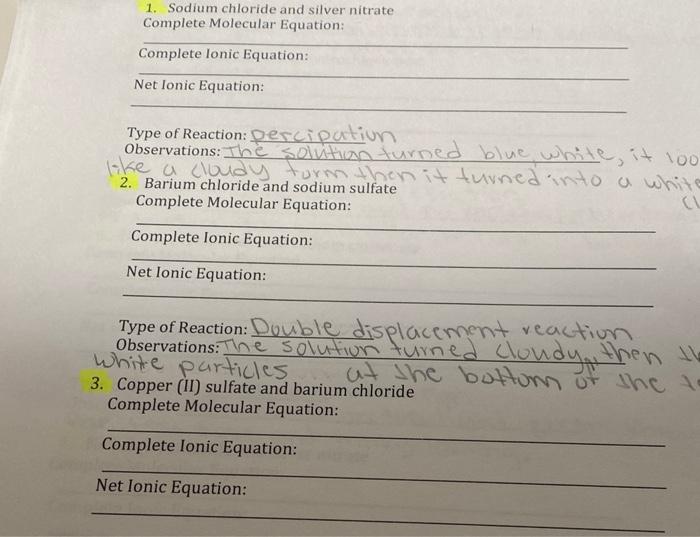 1. Sodium chloride and silver nitrate
Complete Molecular Equation:
Complete Ionic Equation:
Net Ionic Equation:
Type of Reaction: percipation
Observations: The solution turned blue, white, it loo
like a cloudy form then it turned into a white
cl
2. Barium chloride and sodium sulfate
Complete Molecular Equation:
Complete Ionic Equation:
Net Ionic Equation:
Type of Reaction: Double displacement reaction
Observations: The solution turned cloudy, then th
white particles at the bottom of the t
3. Copper (II) sulfate and barium chloride
Complete Molecular Equation:
Complete Ionic Equation:
Net Ionic Equation: